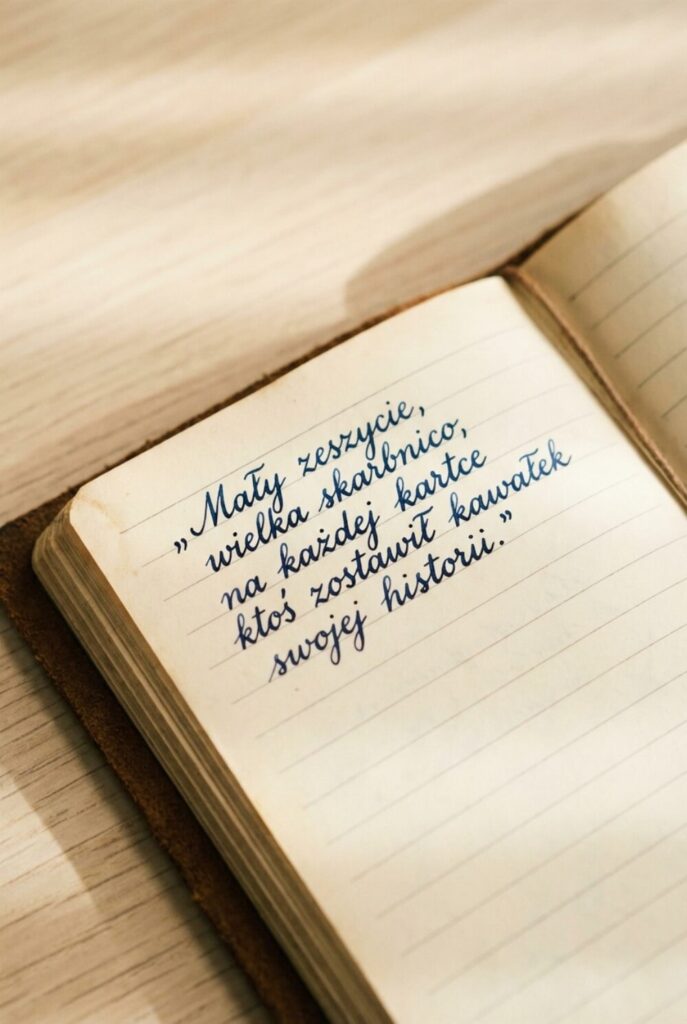 „Mały zeszycie,
wielka skarbnico,
na każdej kartce
ktoś zostawił kawałek
swojej historii.”